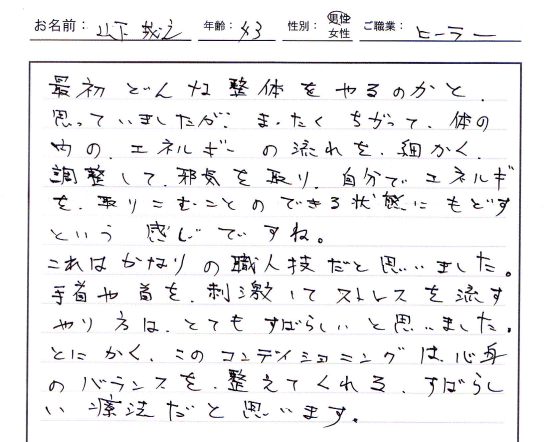 お名前： 山下 哉之 年齢：43 性別： 男性 女性 ご職業： ヒーラー
最初 どんな 整体 を やるのかと、
思っていましたが、まったく ちがって、体の
内の、エネルギー の 流れを、細かく、
調整して、邪気を 取り、自分で エネルギ
を、取りこむことの できる 状態に もどす
という 感じですね。
これは かなりの 職人技だと 思いました。
手首や 首を、刺激して ストレスを 流す
やり方は、とても すばらしいと 思いました。
とにかく、この コンディショニングは、心身
の バランスを、整えて くれる、すばらし
い 療法だと 思います。